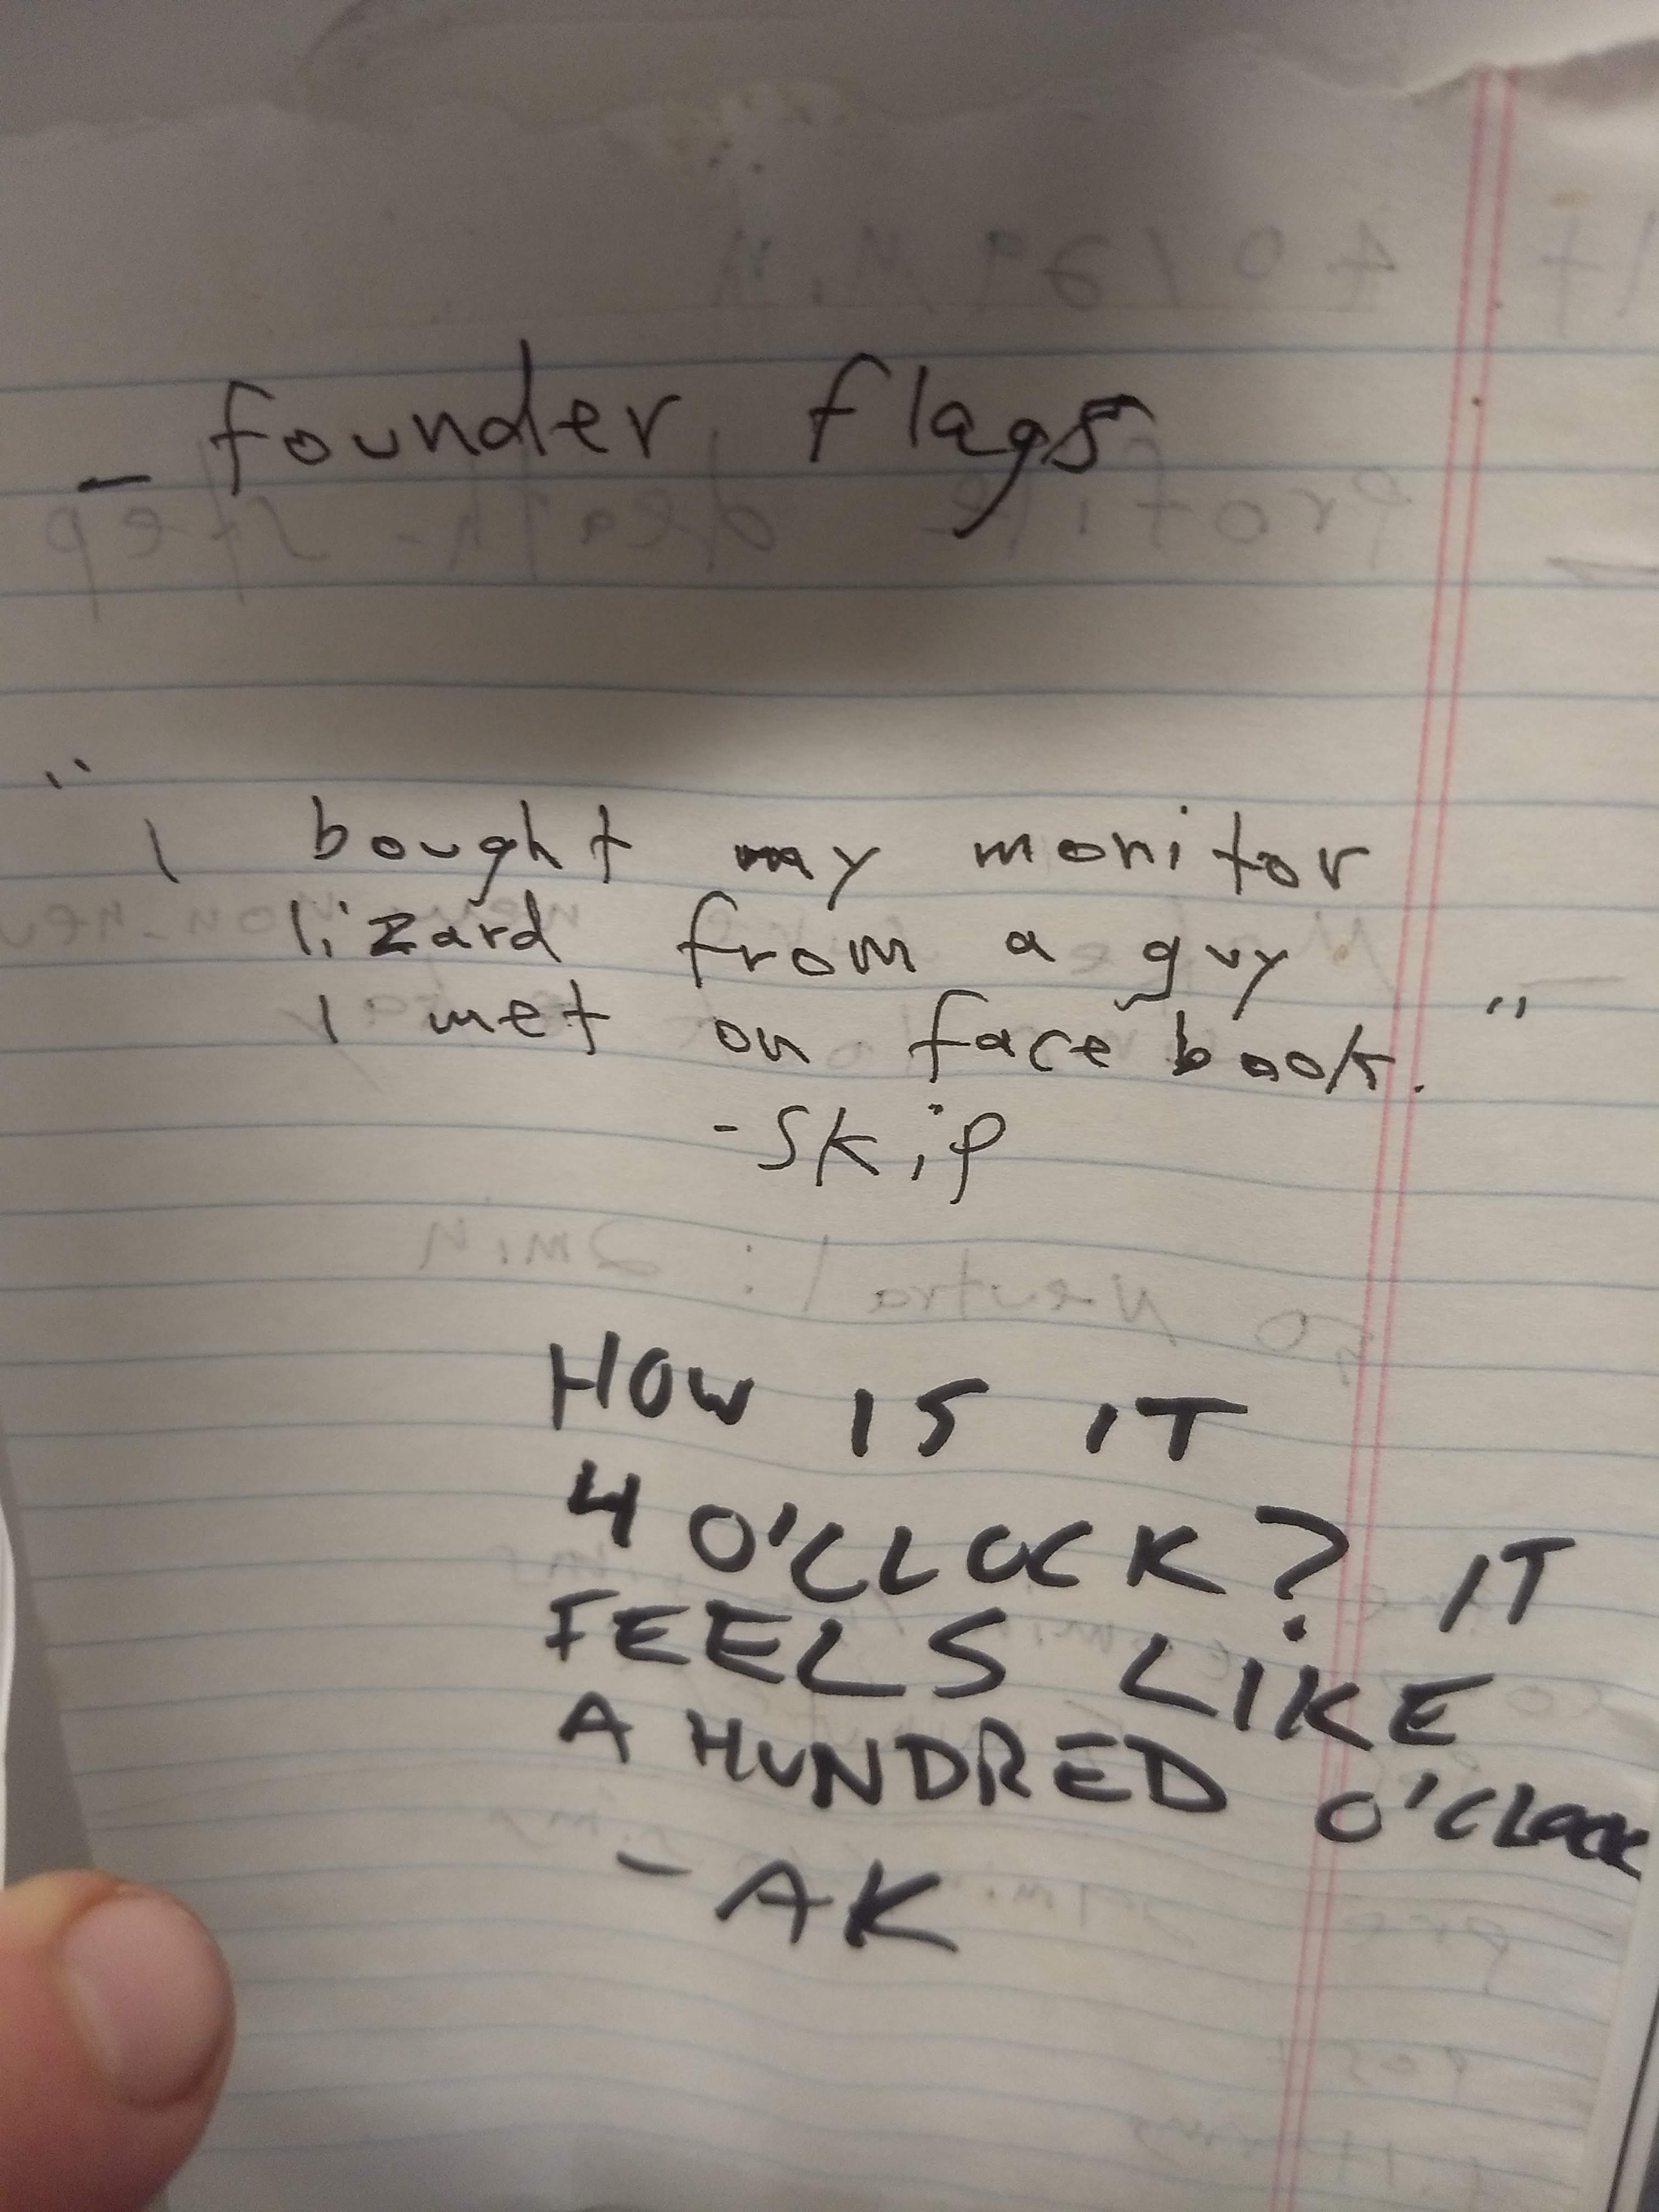 - founder flags
"I bought my monitor
lizard from a guy
I met on facebook."
-Skip
HOW IS IT
4 O'CLOCK? IT
FEELS LIKE
A HUNDRED O'CLOCK
- AK